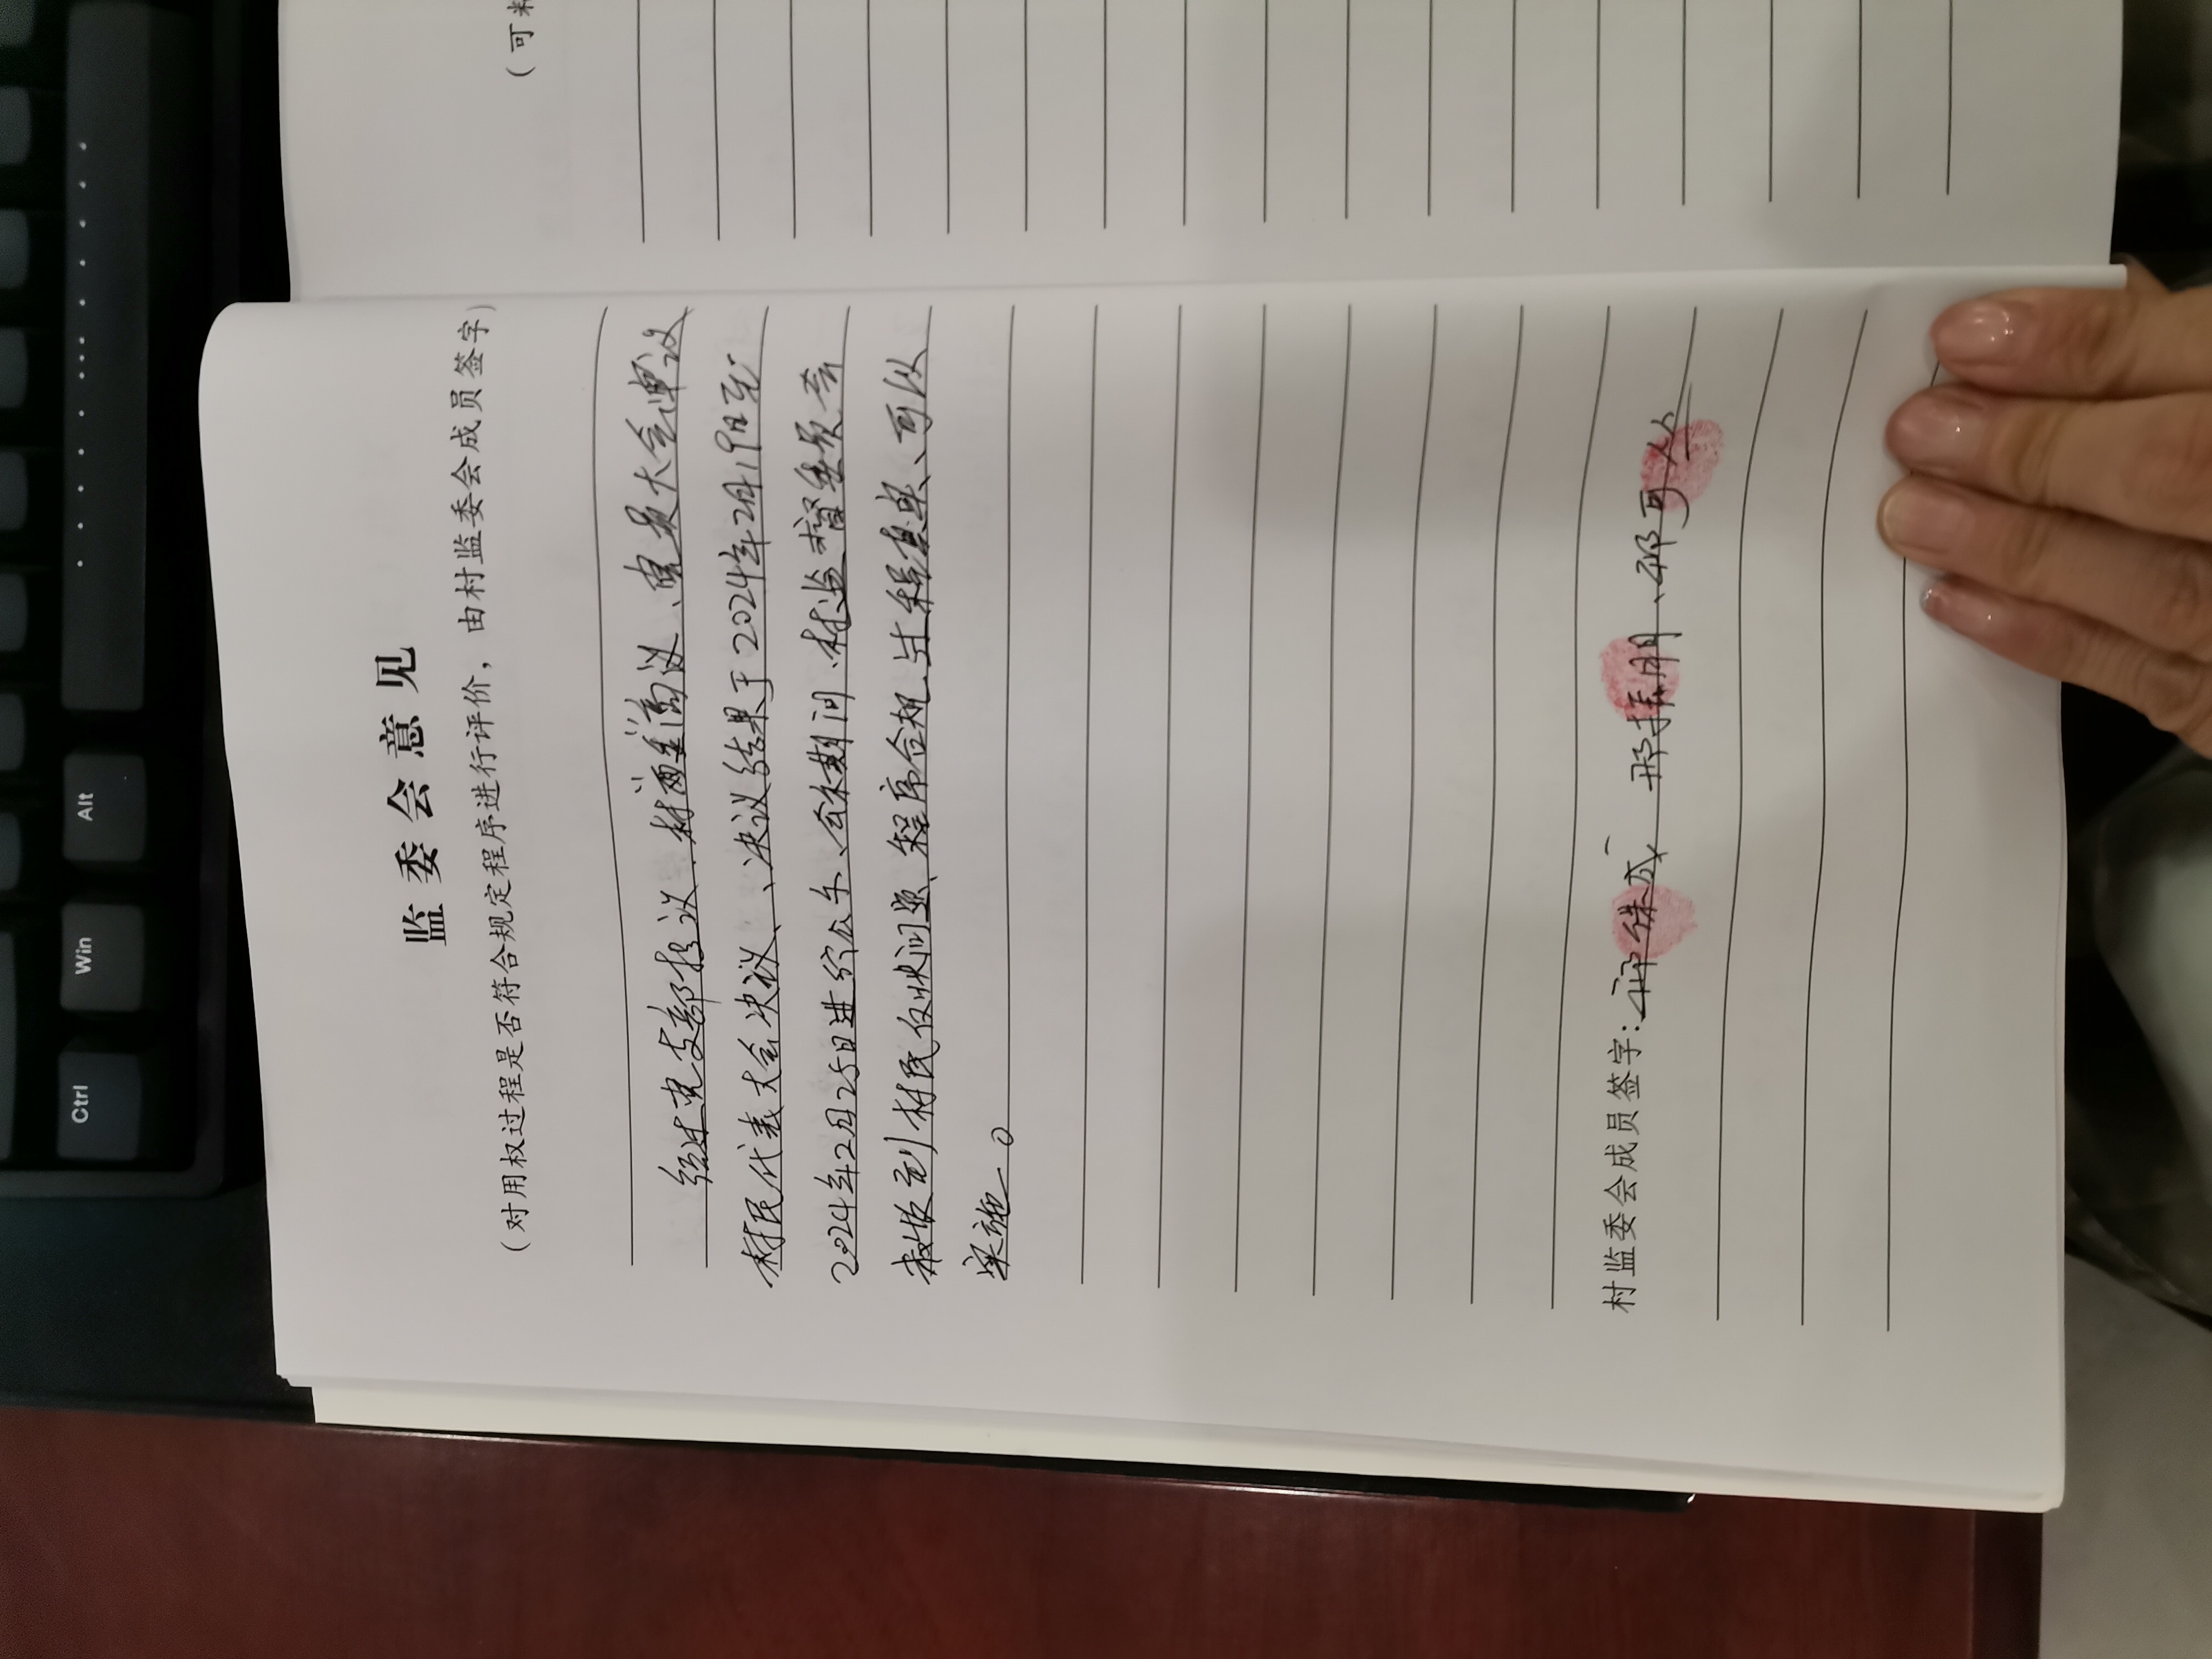 监委会意见
（对用权过程是否符合规定程序进行评价，由村监委会成员签字）
经过党支部提议、村"两委"商议、党员大会审议
村民代表大会决议、决议结果于2024年2月19日至
2024年2月25日进行公示、公示期间、村监督委员会
未收到村民反映问题、程序合规、过程真实、可以
实施。
村监委会成员签字：
（可
Ctrl
Win
Alt